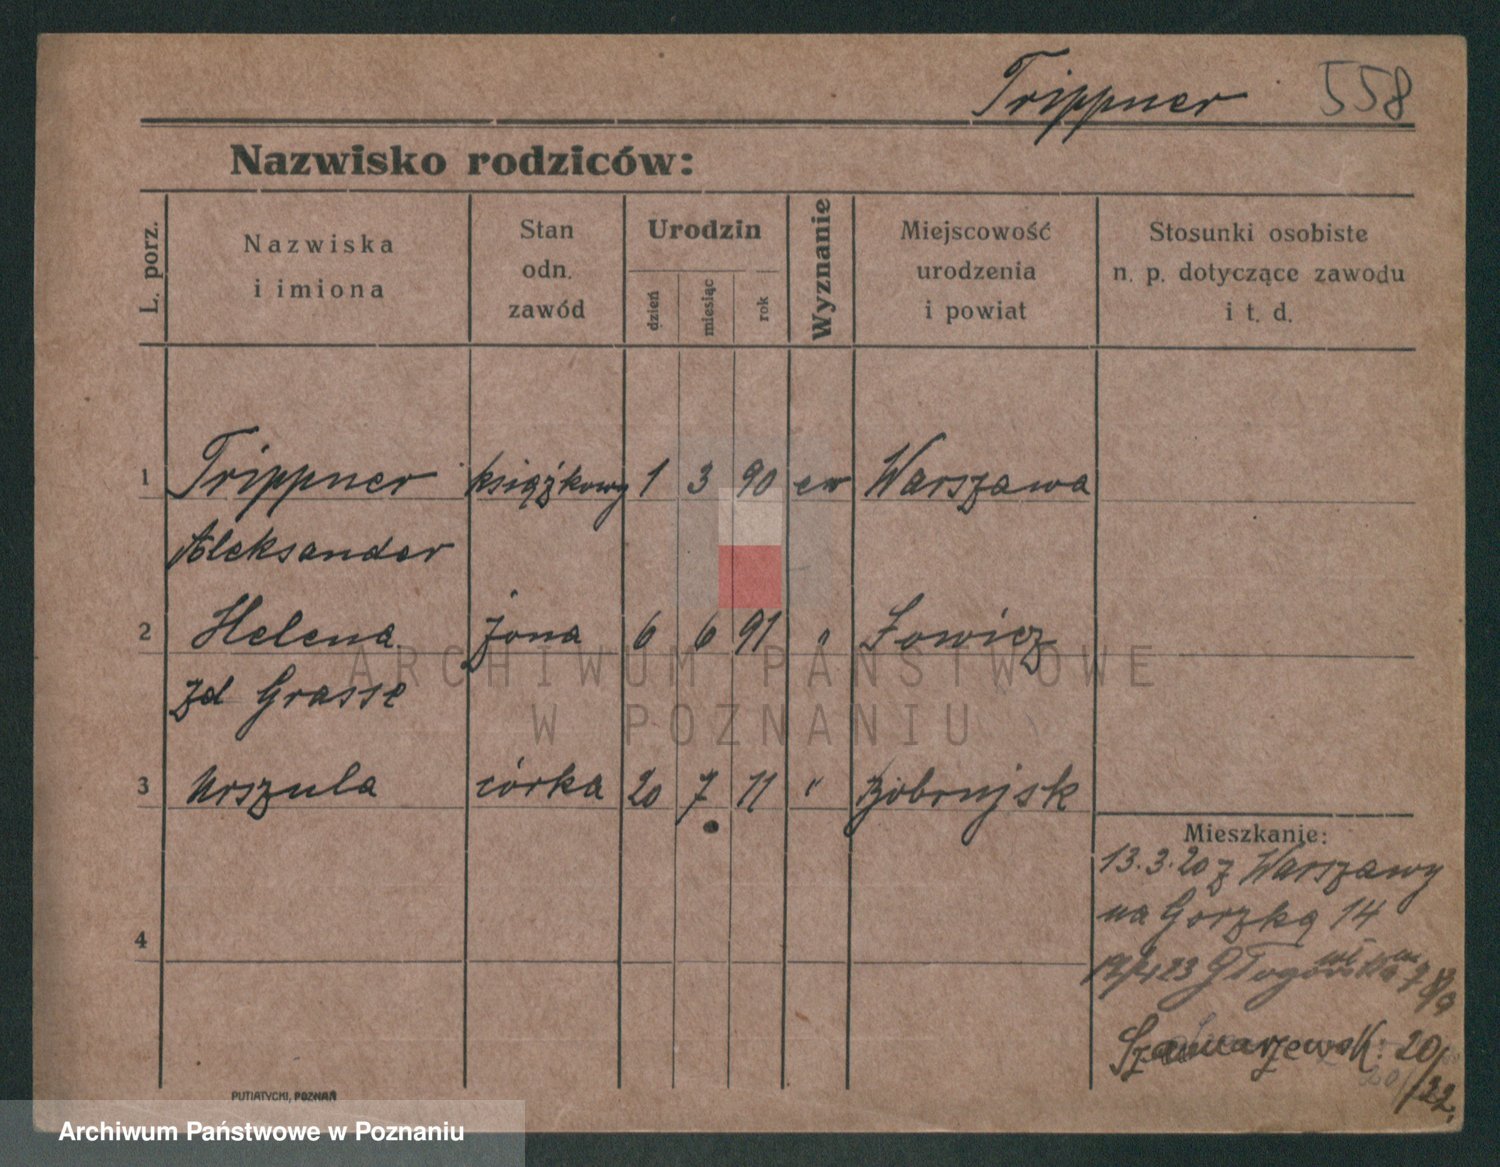 Trippner 558
Nazwisko rodziców:
L. porz.
Nazwiska
i imiona
Stan
odn.
zawód
Urodzin
dzień
miesiąc
rok
Wyznanie
Miejscowość
urodzenia
i powiat
Stosunki osobiste
n. p. dotyczące zawodu
i t. d.
1 Trippner książkowy 1 3 90 ew Warszawa
Aleksander
2 Helena żona 6 6 91 " Łowicz
zd Grasse
3 Urszula córka 20 7 11 " Bobrujsk
4
Mieszkanie:
13.3.20 z Warszawy
na Gorzką 14
Głogowska
Szamarzewsk: 20/
22.
ARCHIWUM PAŃSTWOWE
W POZNANIU
PUTIATYCKI, POZNAŃ
Archiwum Państwowe w Poznaniu